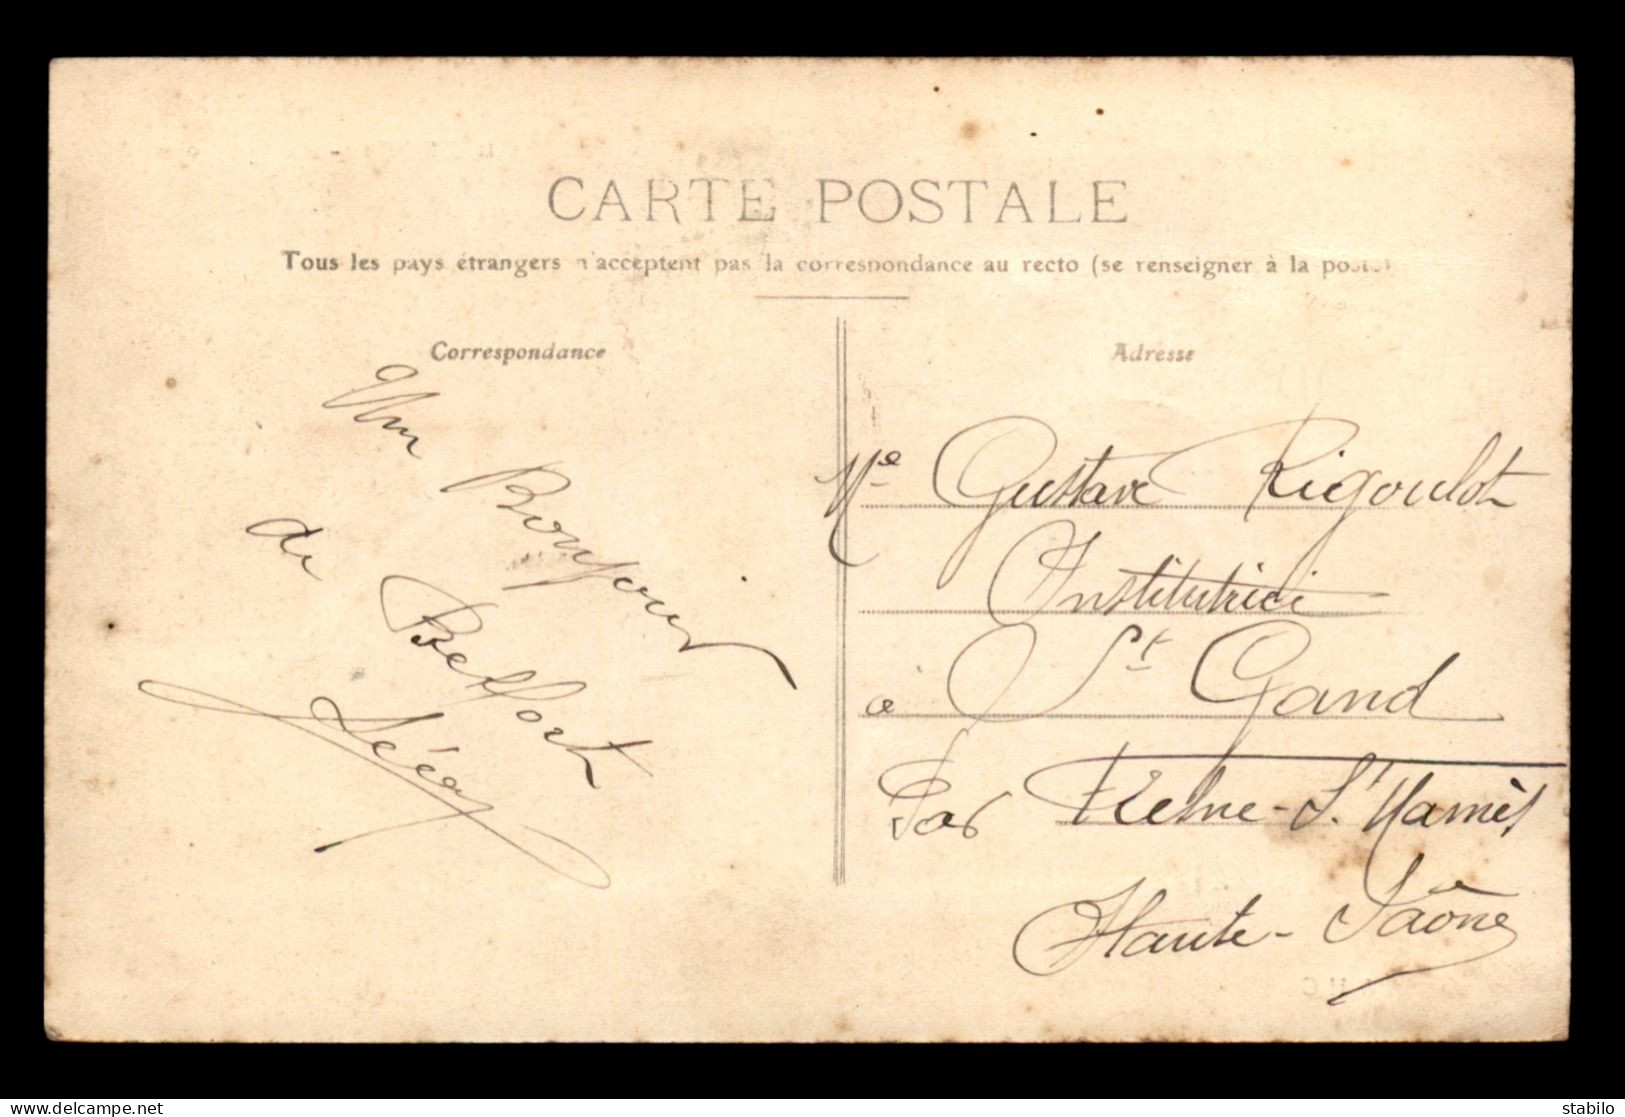 CARTE POSTALE
Tous les pays étrangers n'acceptent pas la correspondance au recto (se renseigner à la poste)
Correspondance
Un Bonjour
de Belfort
Adresse
Me Gustave Rigoulot
Institutrice
à St Gand
Par Fresne-St Mamès
Haute-Saône
delcampe.net
stabilo